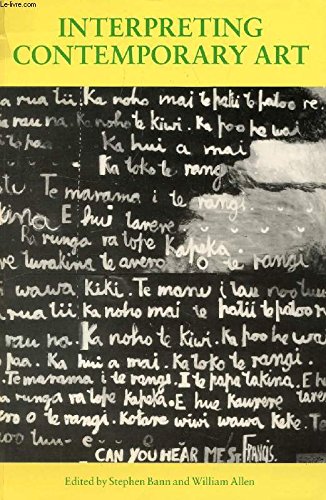 Le-livre.com
INTERPRETING
CONTEMPORARY ART
a rua tii. Ka noho mai te patii te patoo re
rau na. Ka noho te kiwi. Ka poo he wai
te paa. Ka hui a mai
Ka toko te rangi
Te marama i te rangi
E hui tarere
Ra runga ra tope Kapeka
turakina te avero o te rangi
wawa kiki. Te manu i tau
a rua tii Ka noho mai te patii te patoo
rau na. Ka noho te kiwi. Ka poo he wa
paa. Ka hui a mai. Ka toko te rangi.
Te marama i te rangi. I te papa takina. E h
a runga ra tope kapeka. E hue Kaurere tura
avero o te rangi. Kotare wiwi wawa keke. Te
CAN YOU HEAR ME St FRANCIS.
Edited by Stephen Bann and William Allen